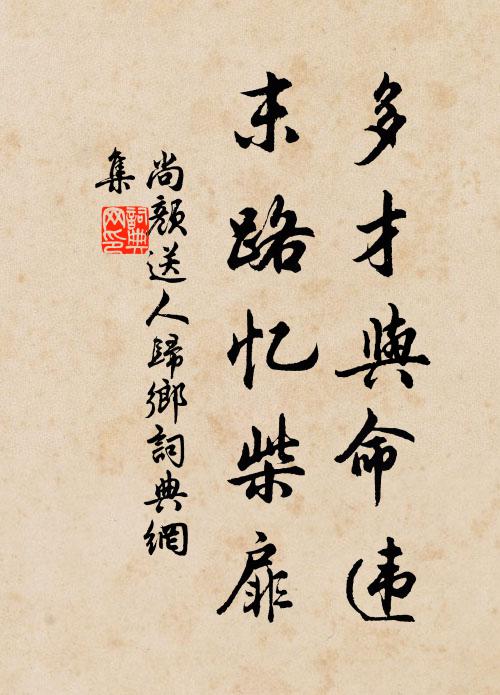 多才與命违
末路忆柴扉
尚顏送人歸鄉詞典網
集
詞典
网印